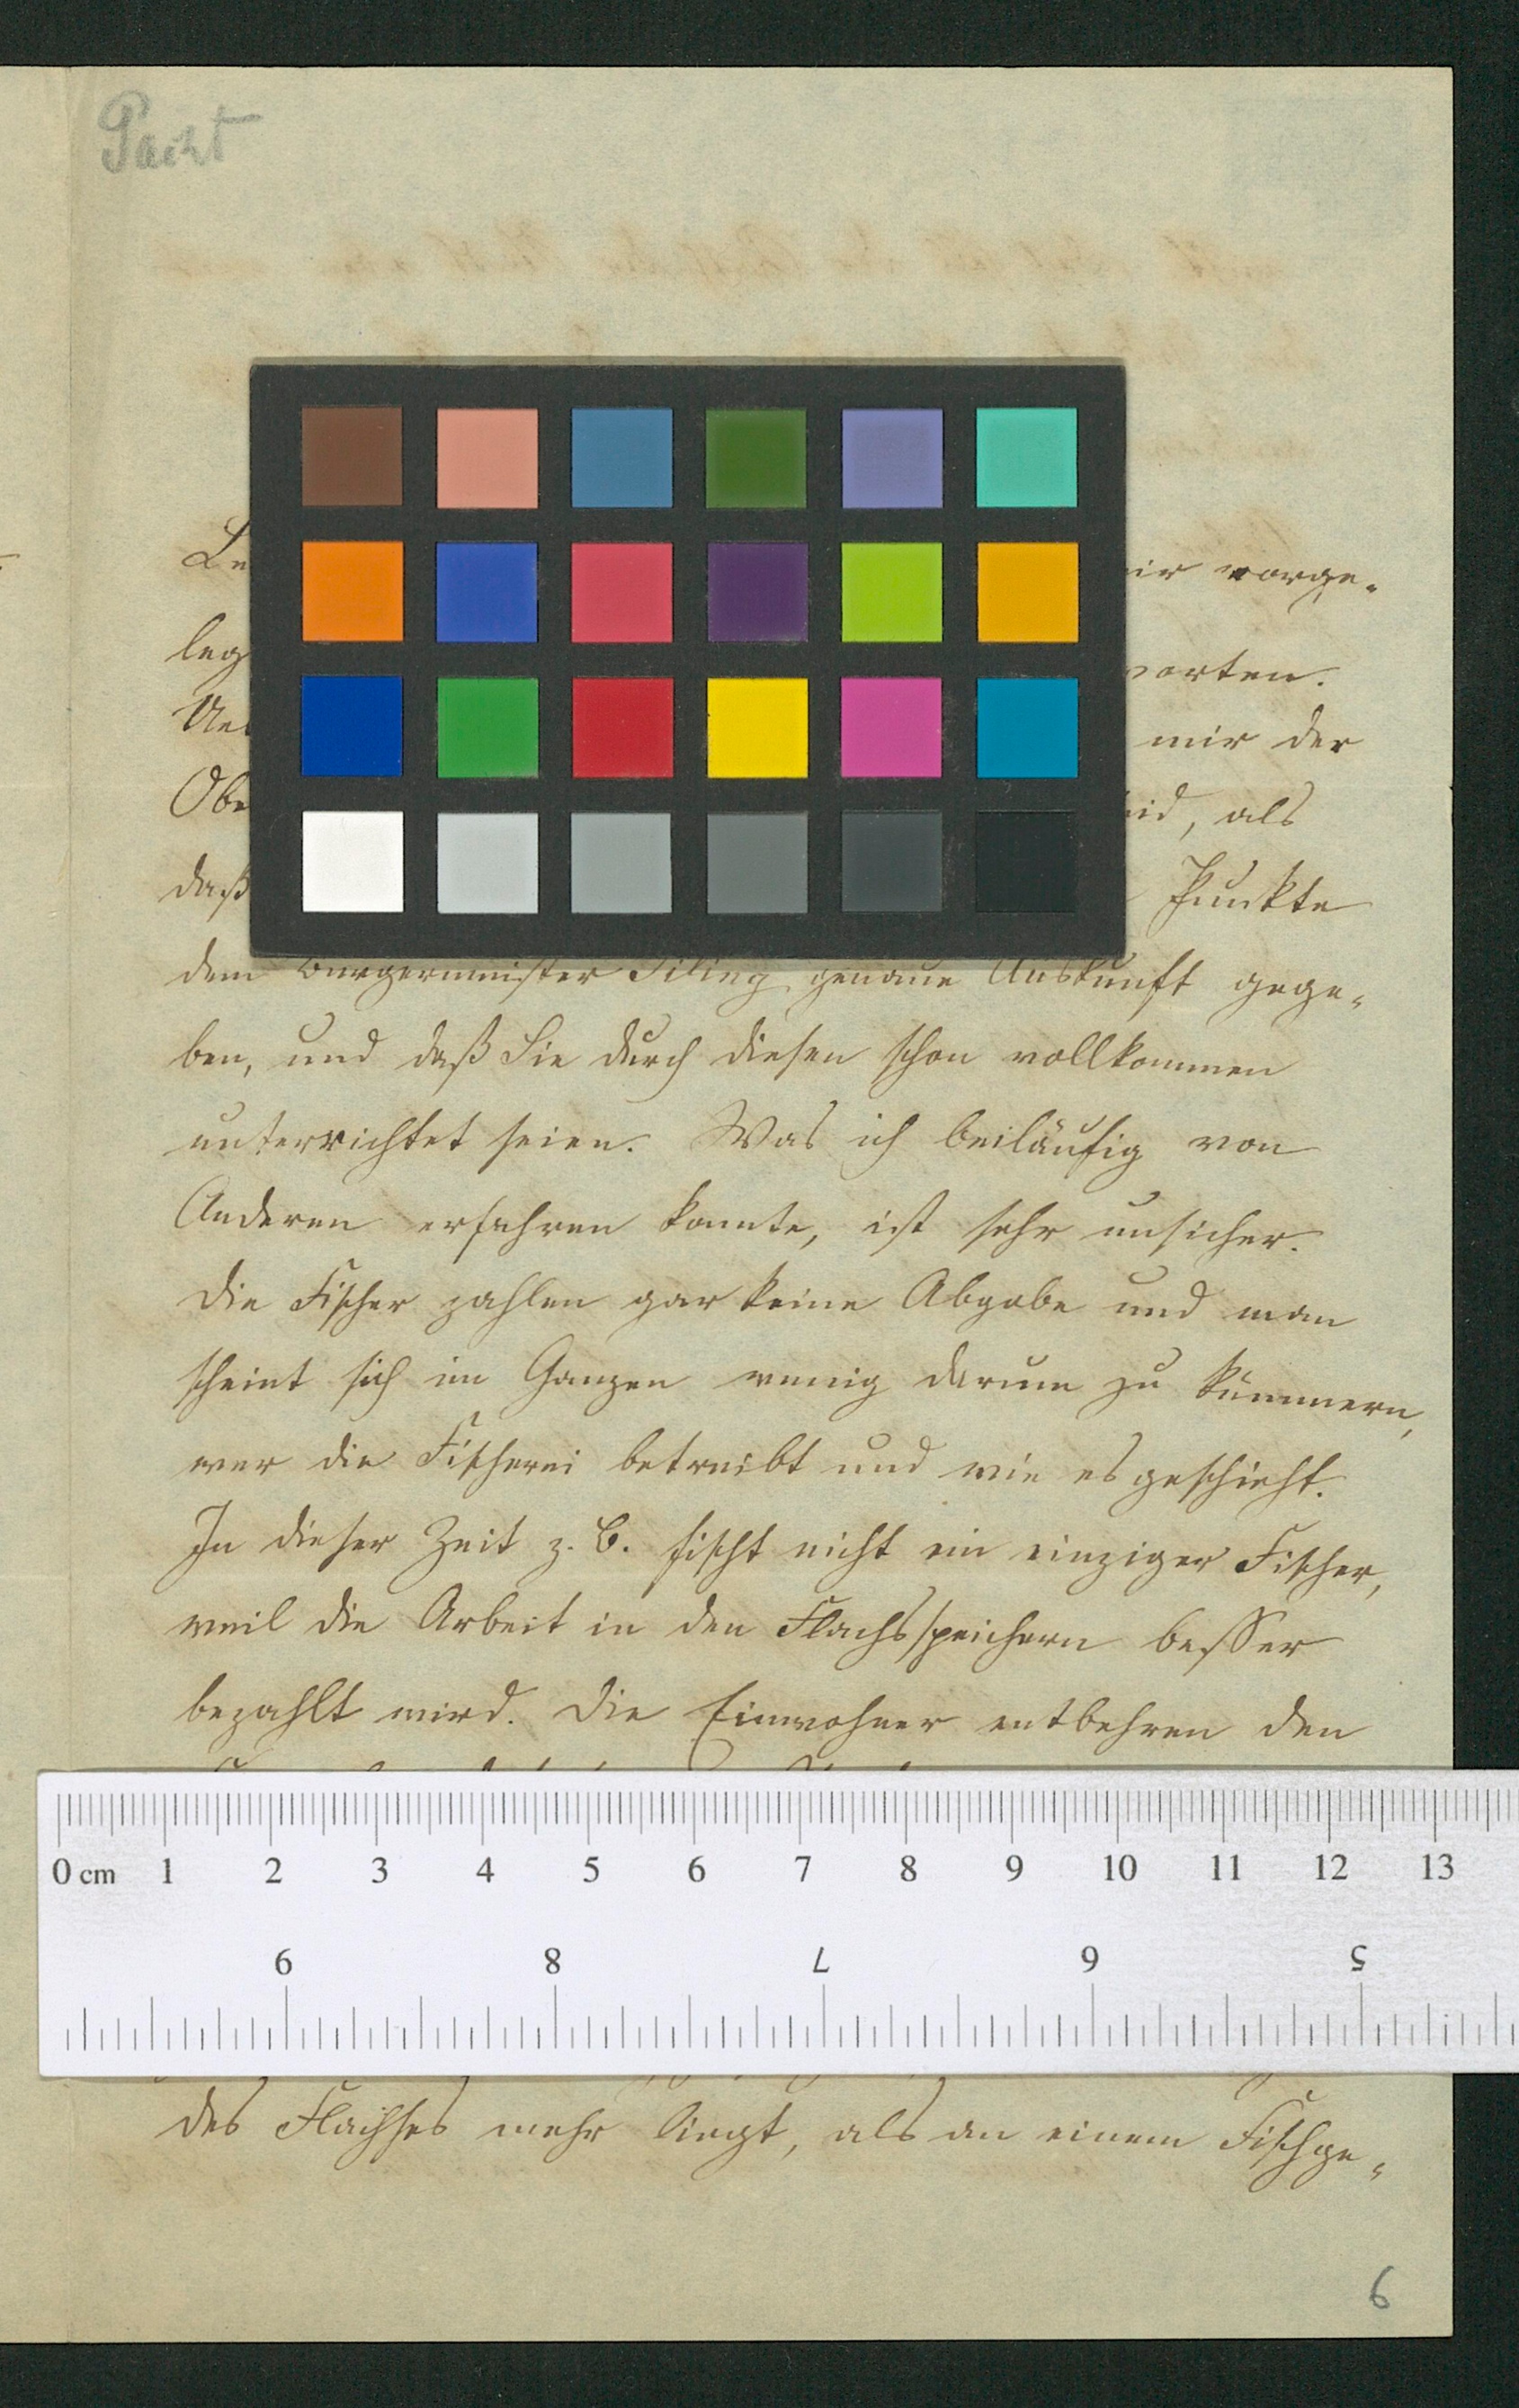 Le
ir vorge-
leg
worten.
Ue
mir der
Obe
id, als
daß
Punkte
dem Bürgermeister genaue Auskunft gege-
ben, und daß Sie durch diesen schon vollkommen
unterrichtet seien. Was ich beiläufig von
Anderen erfahren konnte, ist sehr unsicher.
Die Fischer zahlen gar keine Abgabe und man
scheint sich im Ganzen wenig darum zu kümmern,
wer die Fischerei betreibt und wie es geschieht.
In dieser Zeit z. B. fischt nicht ein einziger Fischer,
weil die Arbeit in den Flachsspeichern besser
bezahlt wird. Die Einwohner entbehren den
0 cm 1 2 3 4 5 6 7 8 9 10 11 12 13
9 8 7 6 5
des Flachses mehr liegt, als an einem Fischge-
6